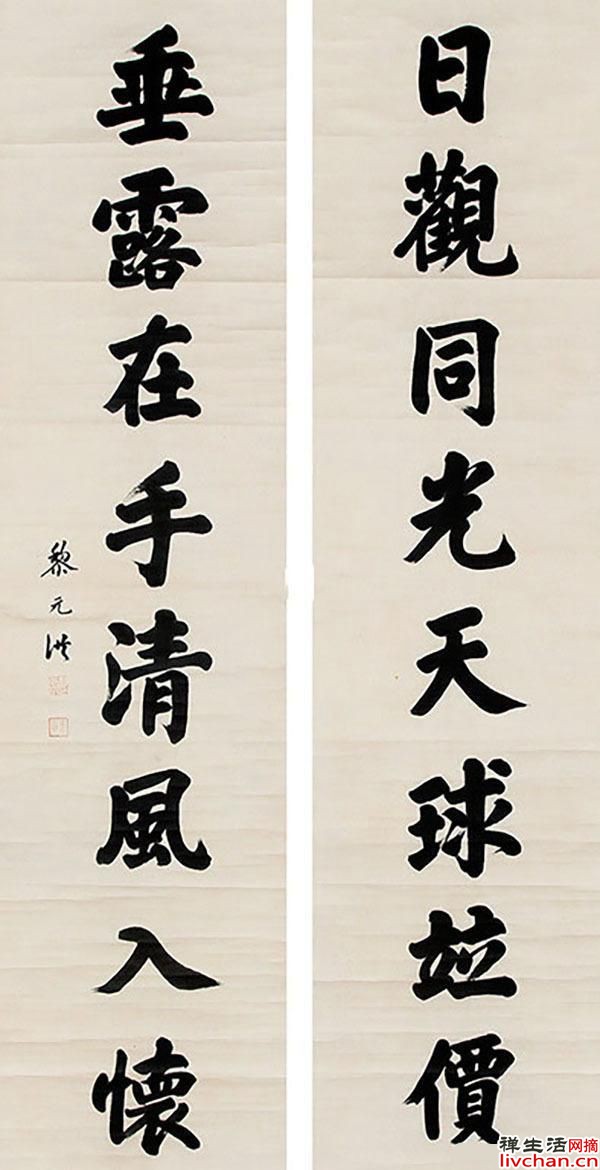 日觀同光天球並價
垂露在手清風入懷
黎元洪
禅生活网摘
livchan.cn